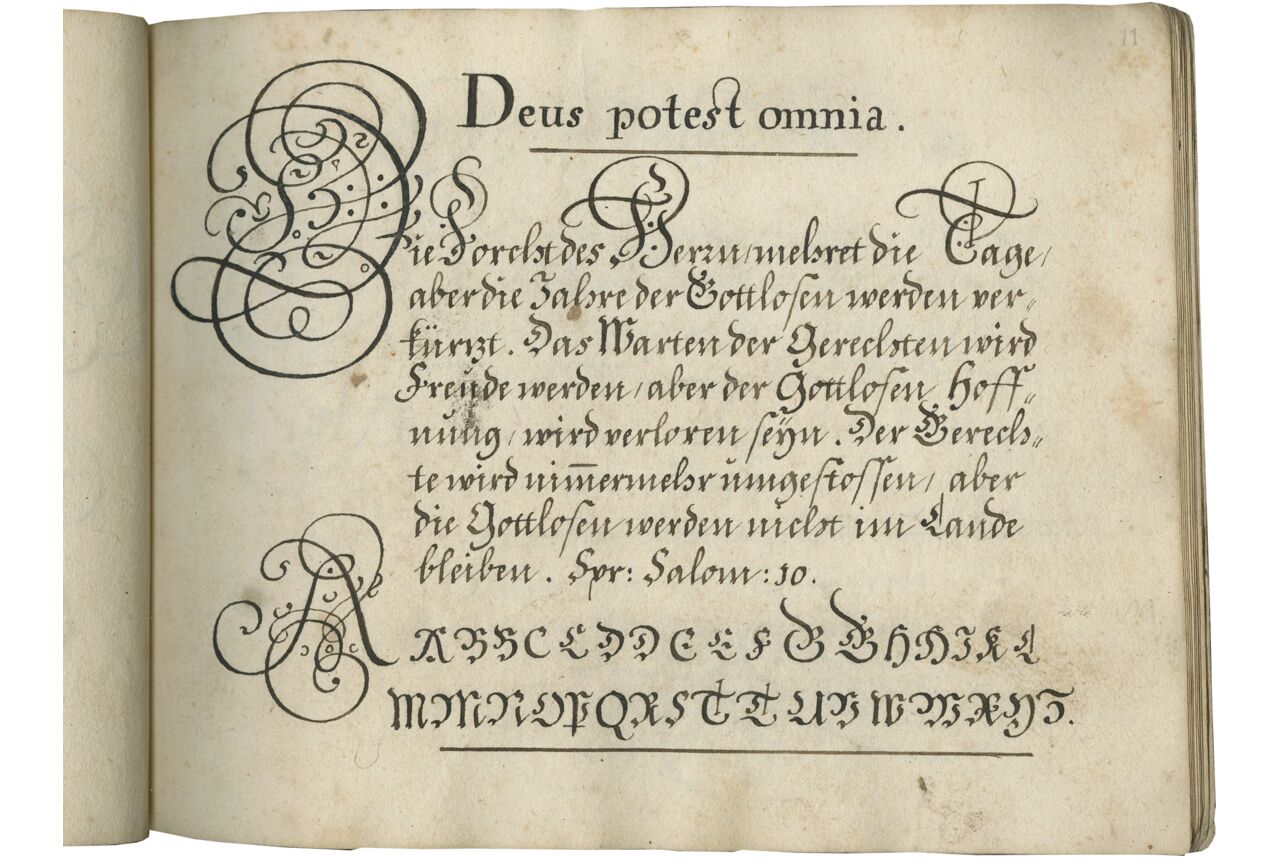 11
Deus potest omnia.
Die Forcht des Herrn / mehret die Tage /
aber die Jahre der Gottlosen werden ver„
kürtzt. Das Warten der Gerechten wird
Freude werden / aber der Gottlosen Hoff„
nung / wird verloren seÿn. Der Gerech„
te wird nim̄ermehr umgestossen / aber
die Gottlosen werden nicht im Lande
bleiben. Spr: Salom: 10.
A A B B C C D D E E F G G H H I K L
M M N O P Q R S T T U V W W X Y Z.